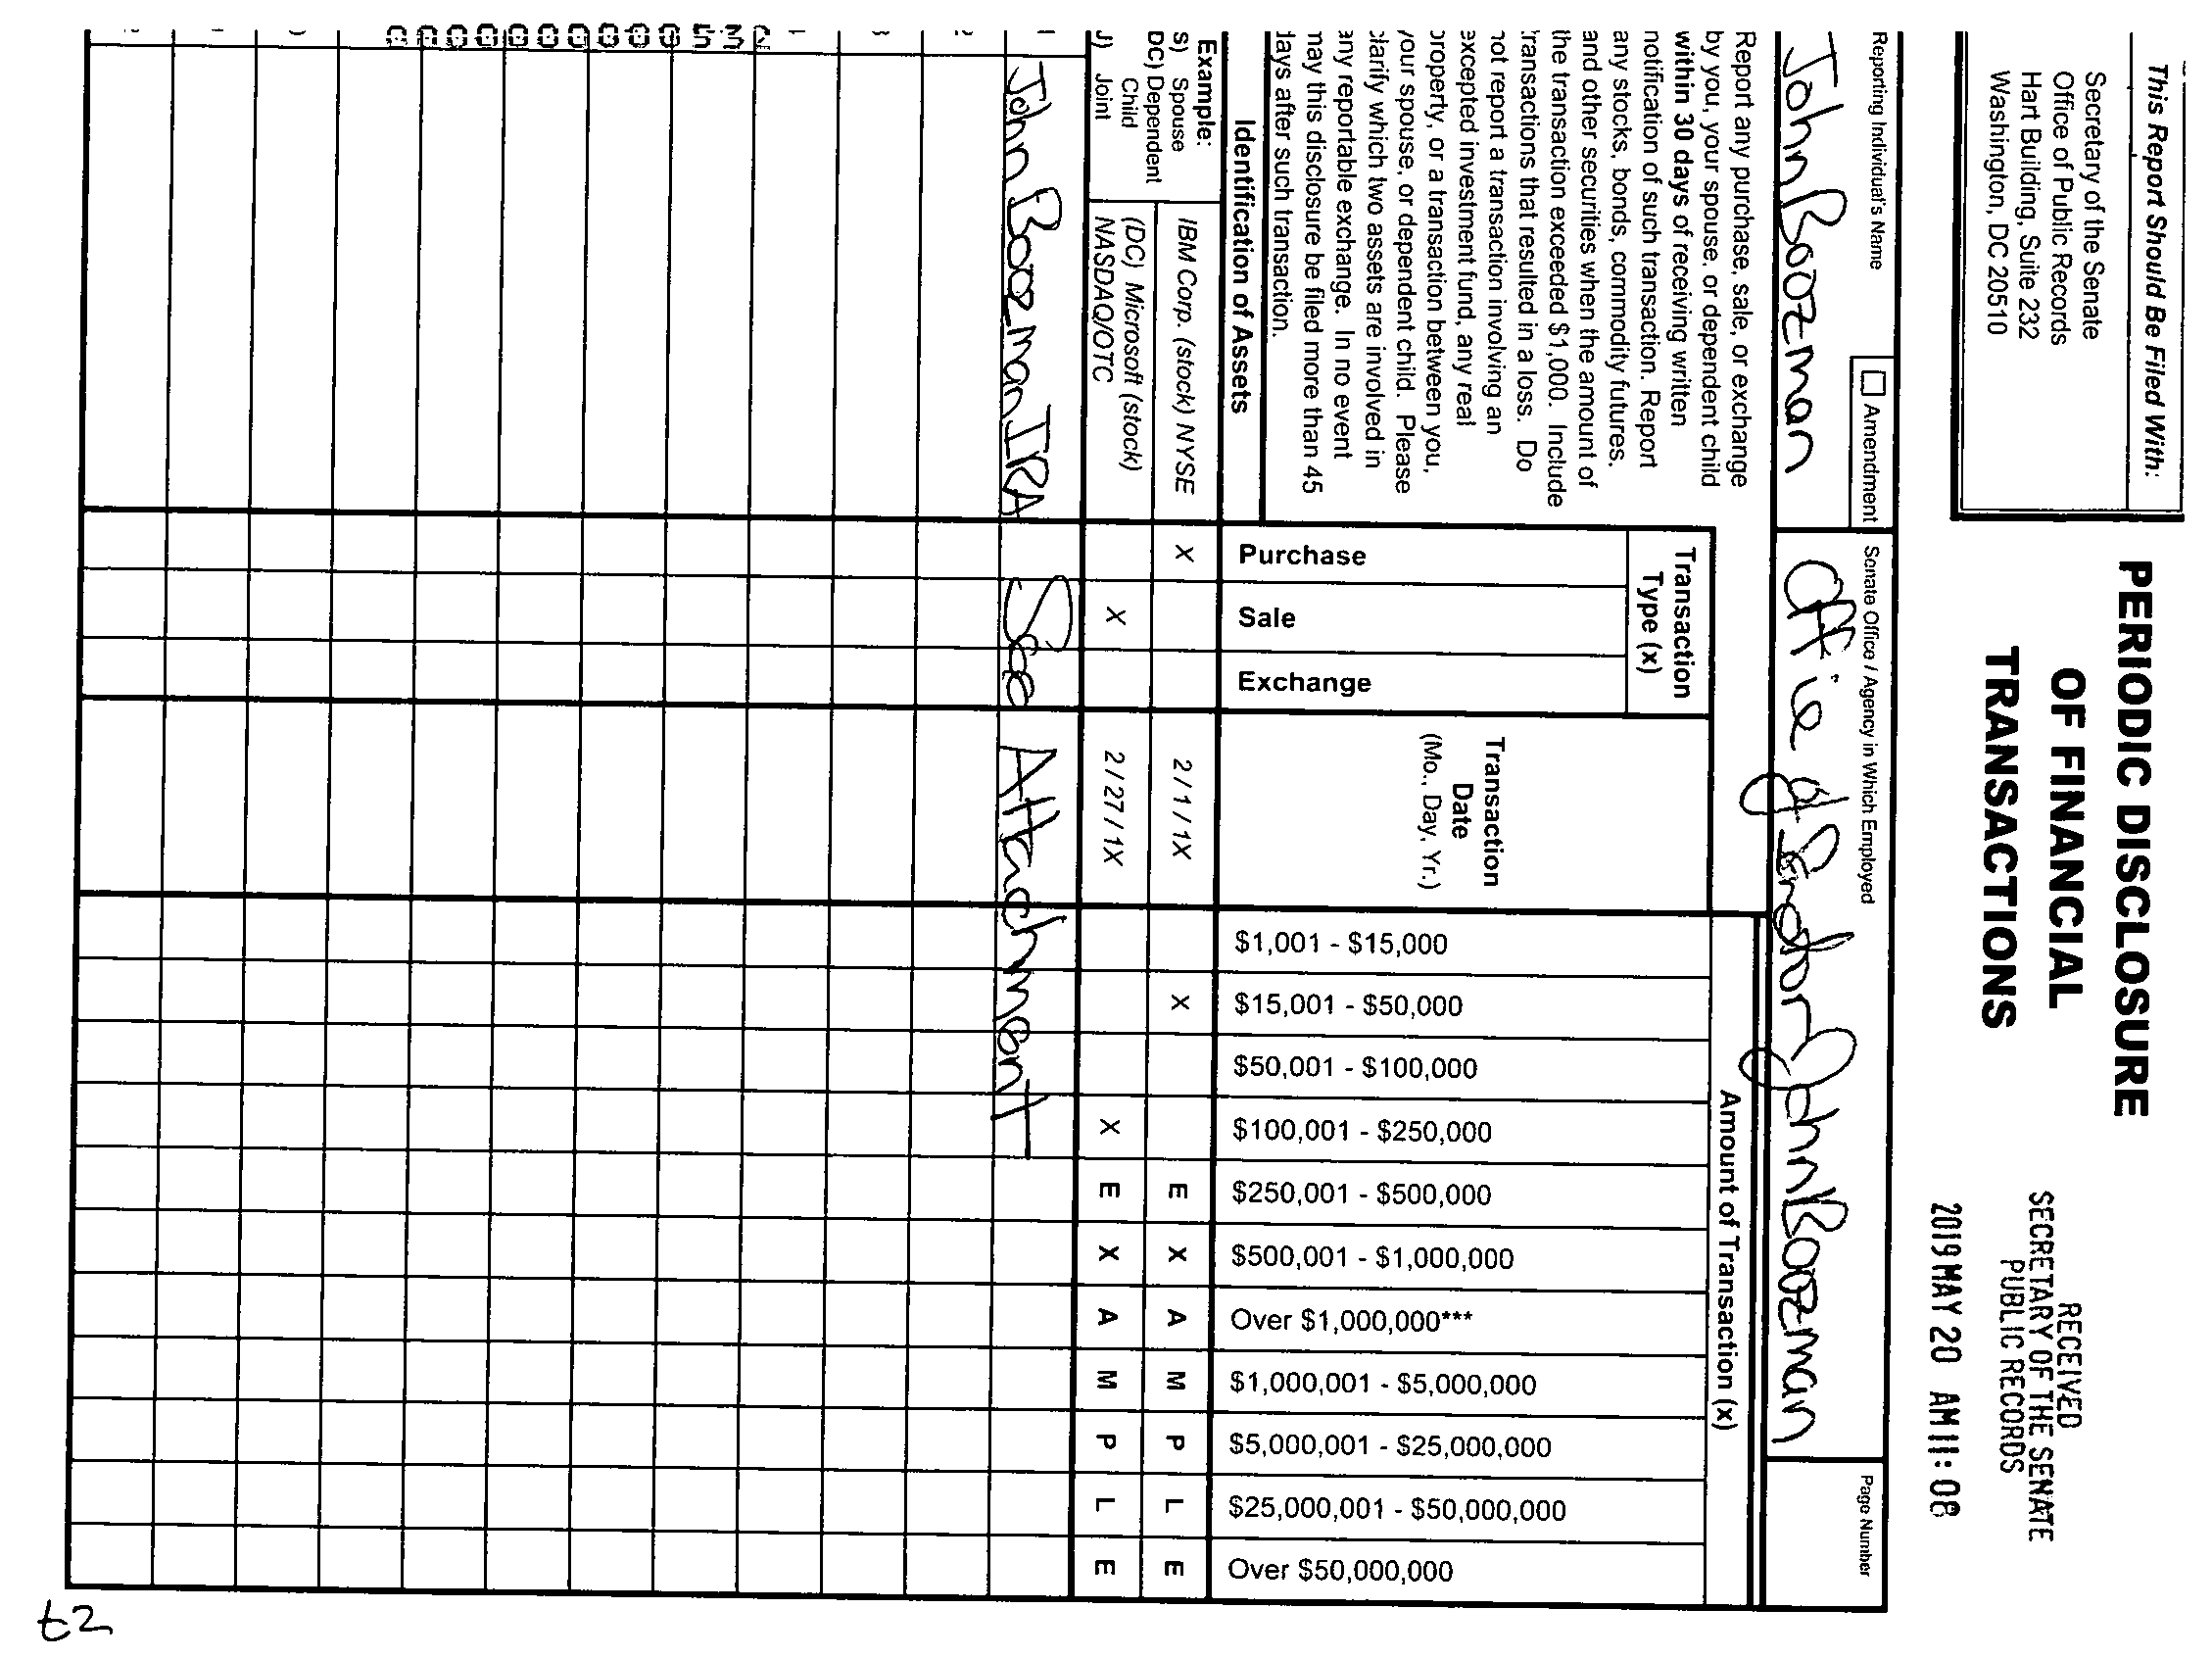 This Report Should Be Filed With:
Secretary of the Senate
Office of Public Records
Hart Building, Suite 232
Washington, DC 20510
PERIODIC DISCLOSURE
OF FINANCIAL
TRANSACTIONS
RECEIVED
SECRETARY OF THE SENATE
PUBLIC RECORDS
2019 MAY 20 AM 11:08
Reporting Individual's Name
Amendment
Senate Office / Agency in Which Employed
Page Number
John Boozman
Office of Senator John Boozman
Report any purchase, sale, or exchange
by you, your spouse, or dependent child
within 30 days of receiving written
notification of such transaction. Report
any stocks, bonds, commodity futures,
and other securities when the amount of
the transaction exceeded $1,000. Include
transactions that resulted in a loss. Do
not report a transaction involving an
excepted investment fund, any real
property, or a transaction between you,
your spouse, or dependent child. Please
clarify which two assets are involved in
any reportable exchange. In no event
may this disclosure be filed more than 45
days after such transaction.
Identification of Assets
Transaction
Type (x)
Purchase
Sale
Exchange
Transaction
Date
(Mo., Day, Yr.)
Amount of Transaction (x)
$1,001 - $15,000
$15,001 - $50,000
$50,001 - $100,000
$100,001 - $250,000
$250,001 - $500,000
$500,001 - $1,000,000
Over $1,000,000***
$1,000,001 - $5,000,000
$5,000,001 - $25,000,000
$25,000,001 - $50,000,000
Over $50,000,000
Example:
S) Spouse
DC) Dependent
Child
J) Joint
IBM Corp. (stock) NYSE X 2 / 1 / 1X X E X A M P L E
(DC) Microsoft (stock)
NASDAQ/OTC X 2 / 27 / 1X X E X A M P L E
John Boozman IRA See Attachment